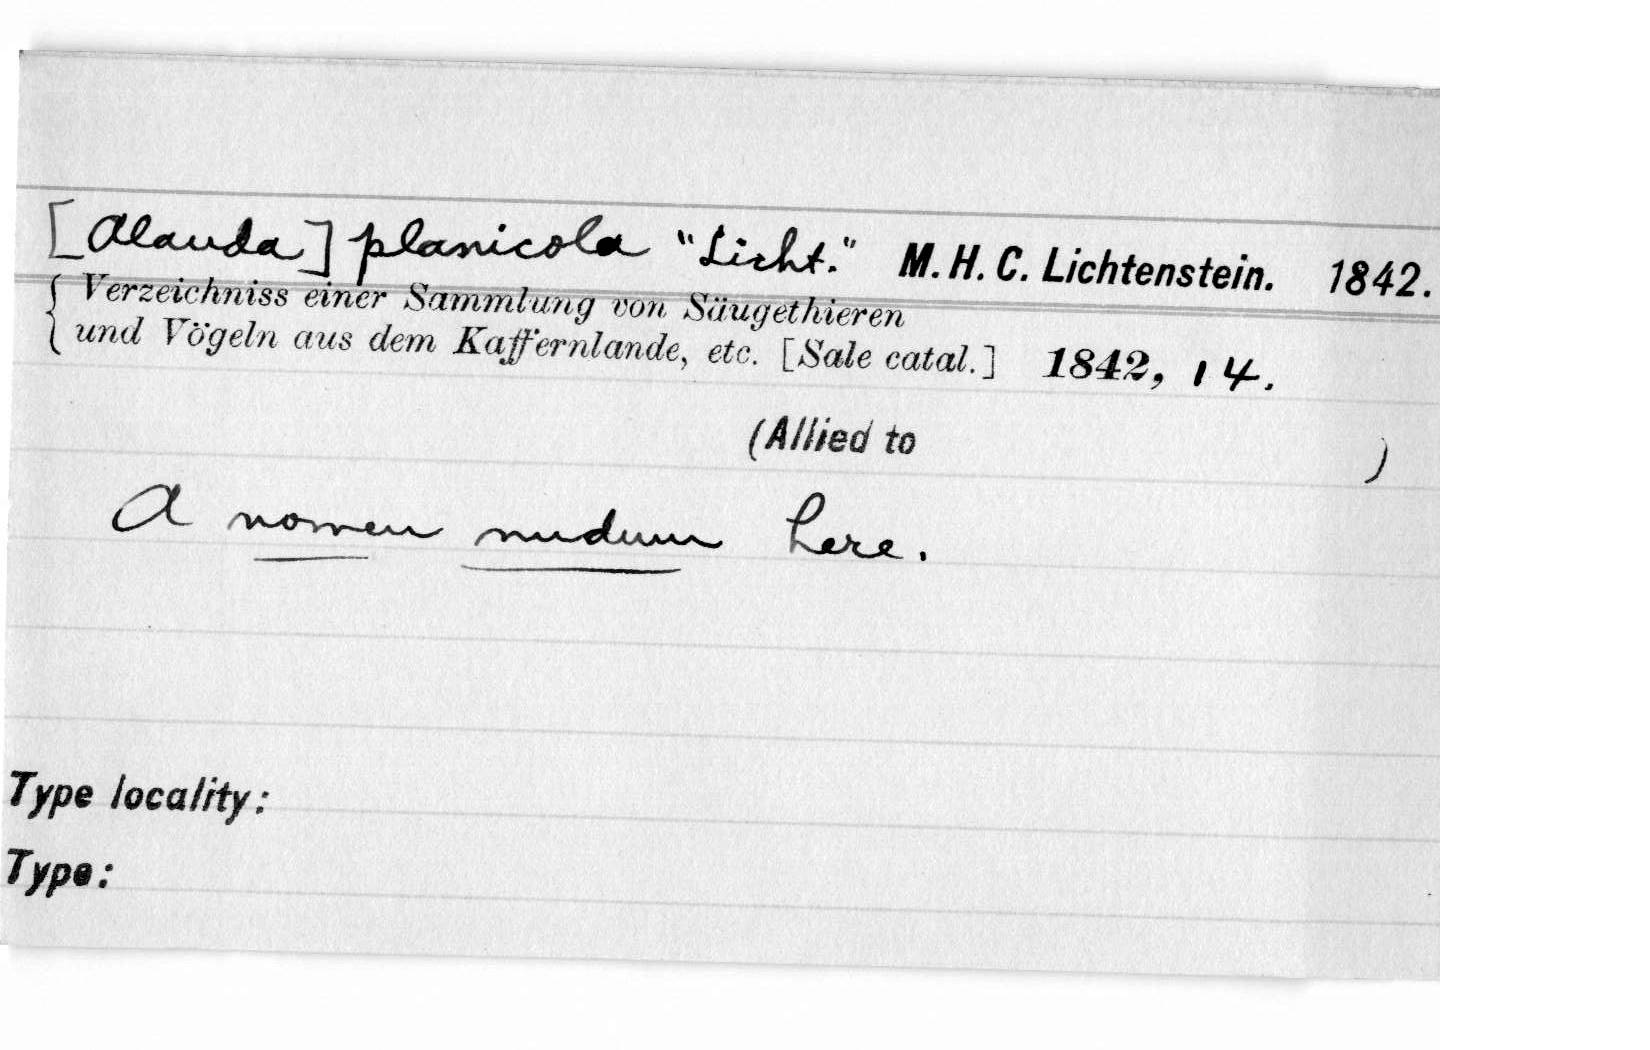 [Alauda] planicola "Licht." M. H. C. Lichtenstein. 1842.
Verzeichniss einer Sammlung von Säugethieren
und Vögeln aus dem Kaffernlande, etc. [Sale catal.] 1842, 14.
(Allied to )
A nomen nudum here.
Type locality:
Type: